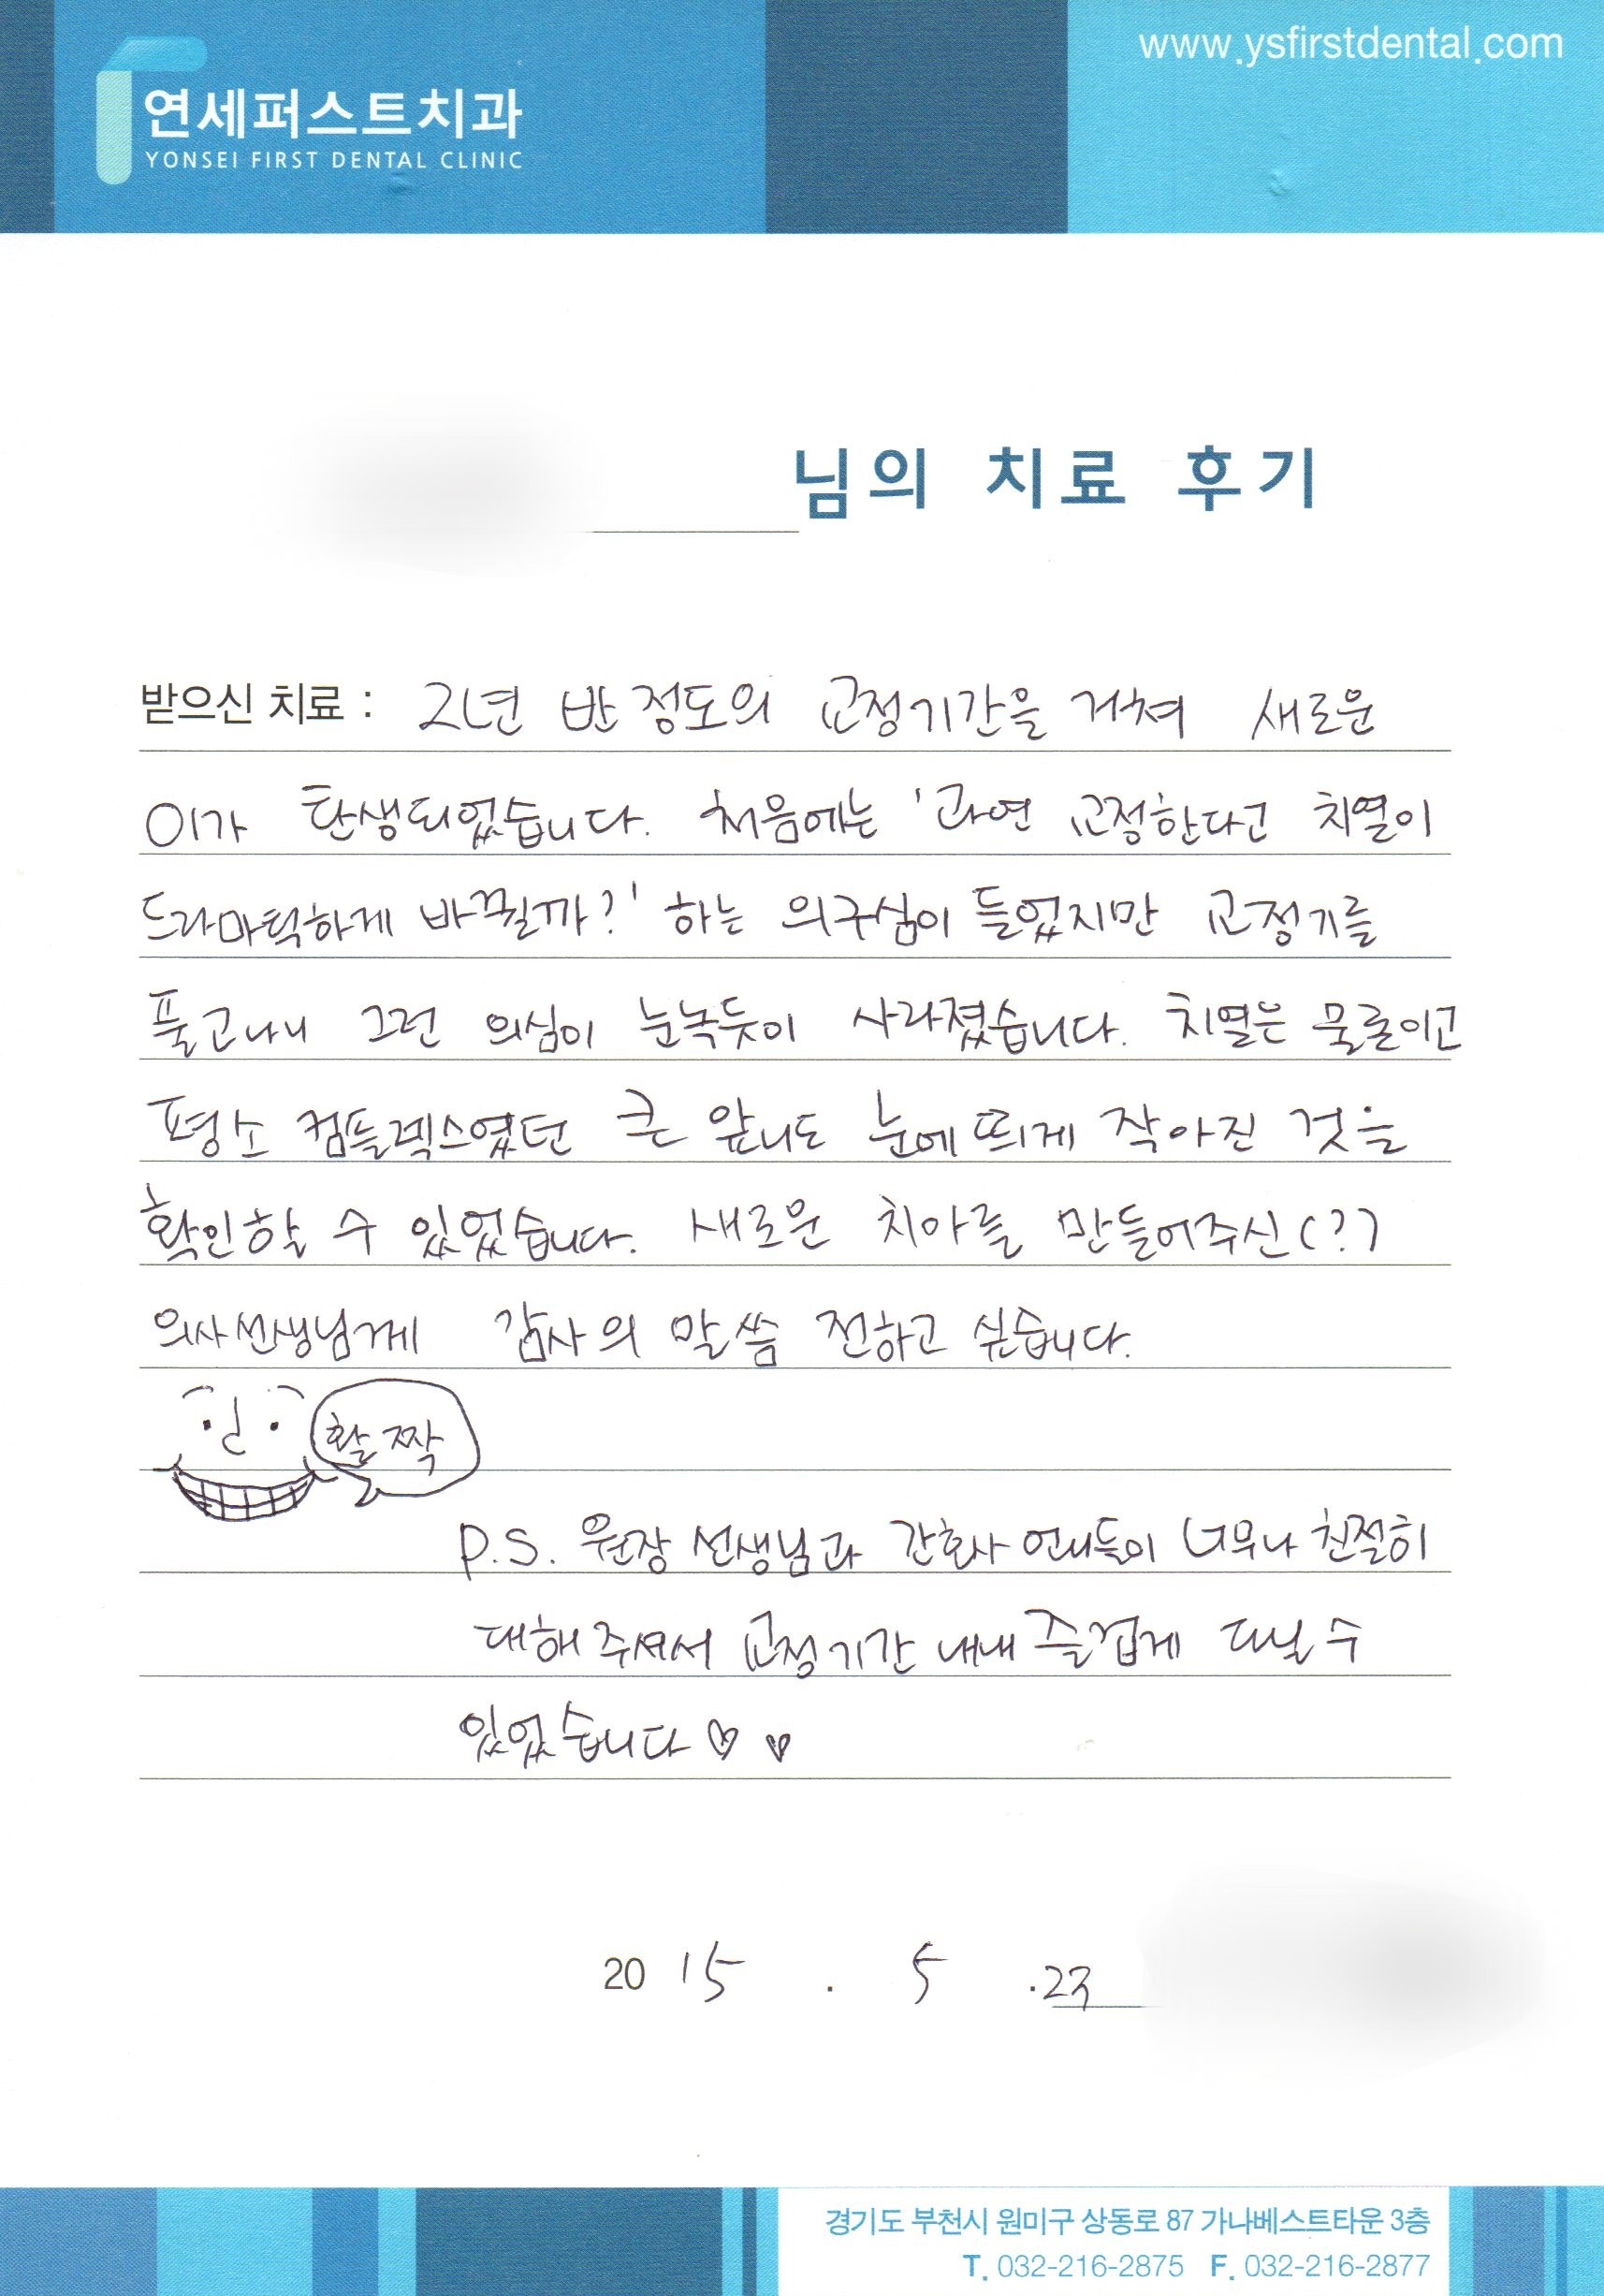 www.ysfirstdental.com
연세퍼스트치과
YONSEI FIRST DENTAL CLINIC
님의 치료 후기
받으신 치료 : 2년 반 정도의 교정기간을 거쳐 새로운
이가 탄생되었습니다. 처음에는 '과연 교정한다고 치열이
드라마틱하게 바뀔까?' 하는 의구심이 들었지만 교정기를
풀고나니 그런 의심이 눈녹듯이 사라졌습니다. 치열은 물론이고
평소 컴플렉스였던 큰 앞니도 눈에 띄게 작아진 것을
확인할 수 있었습니다. 새로운 치아를 만들어주신(?)
의사선생님께 감사의 말씀 전하고 싶습니다.
활짝
P.S. 원장 선생님과 간호사 언니들이 너무나 친절히
대해 주셔서 교정기간 내내 즐겁게 다닐 수
있었습니다♡♡
2015 . 5 .23
경기도 부천시 원미구 상동로 87 가나베스트타운 3층
T. 032-216-2875 F. 032-216-2877